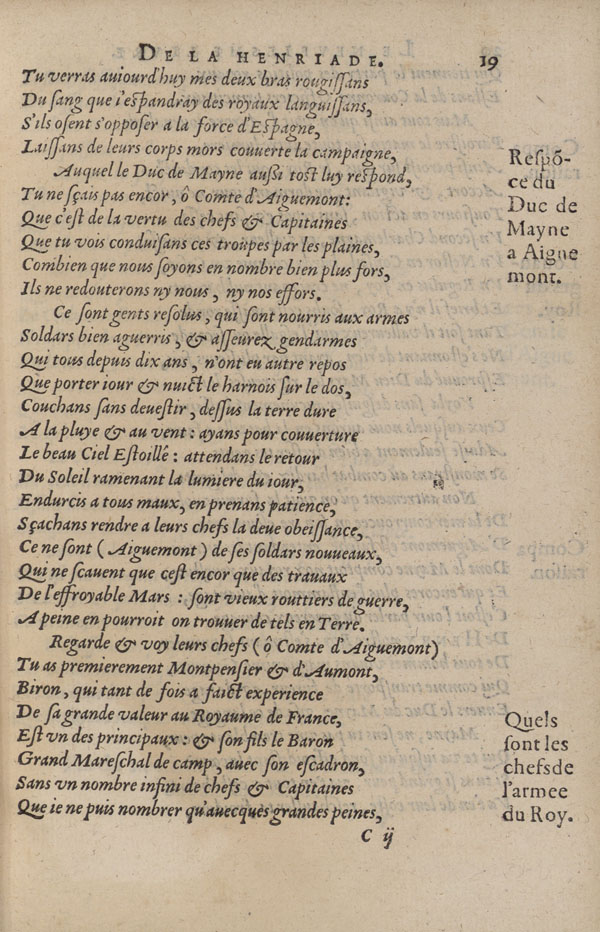 DE LA HENRIADE. 19
Tu verras auiourd'huy mes deux bras rougiſſans
Du ſang que i'eſpandray des royaux languiſſans,
S'ils oſent s'oppoſer a la force d'Eſpagne,
Laiſſans de leurs corps mors couuerte la campaigne,
Auquel le Duc de Mayne außi toſt luy reſpond,
Tu ne ſçais pas encor, ô Comte d'Aiguemont:
Que c'eſt de la vertu des chefs & Capitaines
Que tu vois conduiſans ces troupes par les plaines,
Combien que nous ſoyons en nombre bien plus fors,
Ils ne redouteront ny nous, ny nos effors.
Reſpõ-
ce du
Duc de
Mayne
a Aigue
mont.
Ce ſont gents reſolus, qui ſont nourris aux armes
Soldars bien aguerris, & aſſeurez gendarmes
Qui tous depuis dix ans, n'ont eu autre repos
Que porter iour & nuict le harnois ſur le dos,
Couchans ſans deueſtir, deſſus la terre dure
A la pluye & au vent: ayans pour couuerture
Le beau Ciel Eſtoillé: attendans le retour
Du Soleil ramenant la lumiere du iour,
Endurcis a tous maux, en prenans patience,
Sçachans rendre a leurs chefs la deue obeiſſance,
Ce ne ſont (Aiguemont) de ſes ſoldars nouueaux,
Qui ne ſcauent que ceſt encor que des trauaux
De l'effroyable Mars: ſont vieux routtiers de guerre,
A peine en pourroit on trouuer de tels en Terre.
Regarde & voy leurs chefs (ô Comte d'Aiguemont)
Tu as premierement Montpenſier & d'Aumont,
Biron, qui tant de fois a faict experience
De ſa grande valeur au Royaume de France,
Eſt vn des principaux: & ſon fils le Baron
Grand Mareſchal de camp, auec ſon eſcadron,
Sans vn nombre infini de chefs & Capitaines
Que ie ne puis nombrer qu'auecques grandes peines,
Quels
ſont les
chefs de
l'armee
du Roy.
C ij